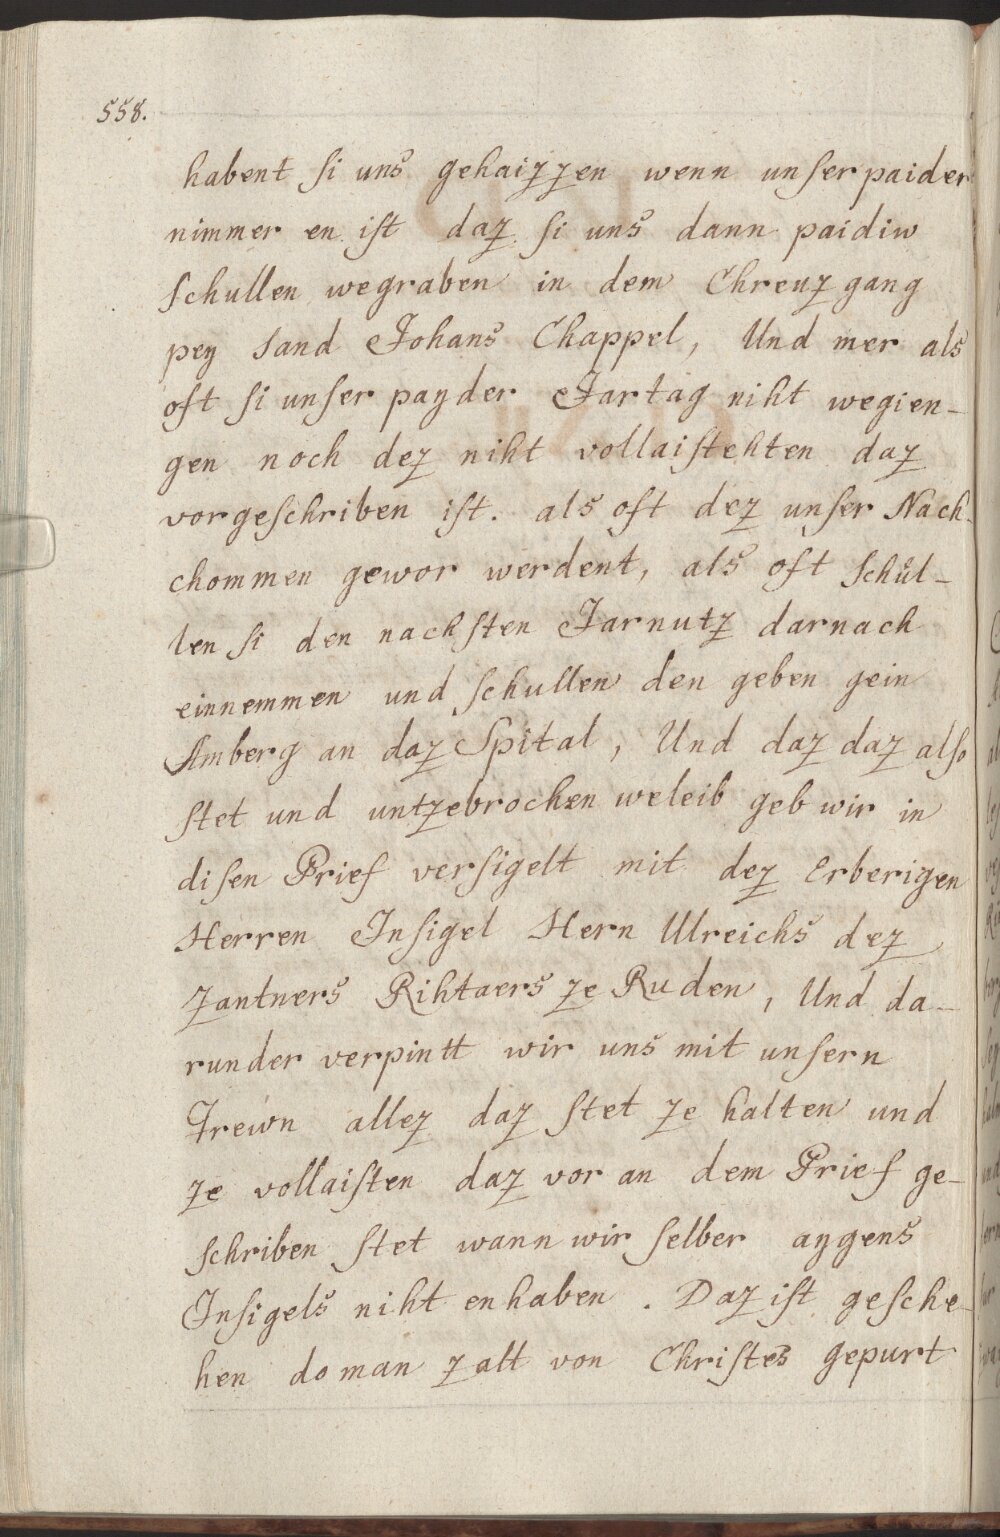 558.
habent si uns gehaizzen wenn unser paider
nimmer en ist daz si uns dann paidiw
schullen wegraben in dem Chreuzgang
pey sand Johans Chappel, Und mer als
oft si unser payder Jartag niht wegien-
gen noch dez niht vollaistehten daz
vorgeschriben ist. als oft dez unser Nach-
chommen gewor werdent, als oft schůl-
len si den nachsten Jarnutz darnach
einnemmen und schullen den geben gein
Amberg an daz Spital, Und daz daz also
stet und untzebrochen weleib geb wir in
disen Prief versigelt mit dez Erberigen
Herren Insigel Hern Ulreichs dez
Zantners Rihtaers ze Ruden, Und da-
runder verpintt wir uns mit unsern
Trewn allez daz stet ze halten und
ze vollaisten daz vor an dem Prief ge-
schriben stet wann wir selber aygens
Insigels niht enhaben. Daz ist gesche-
hen do man zalt von Christes gepurt